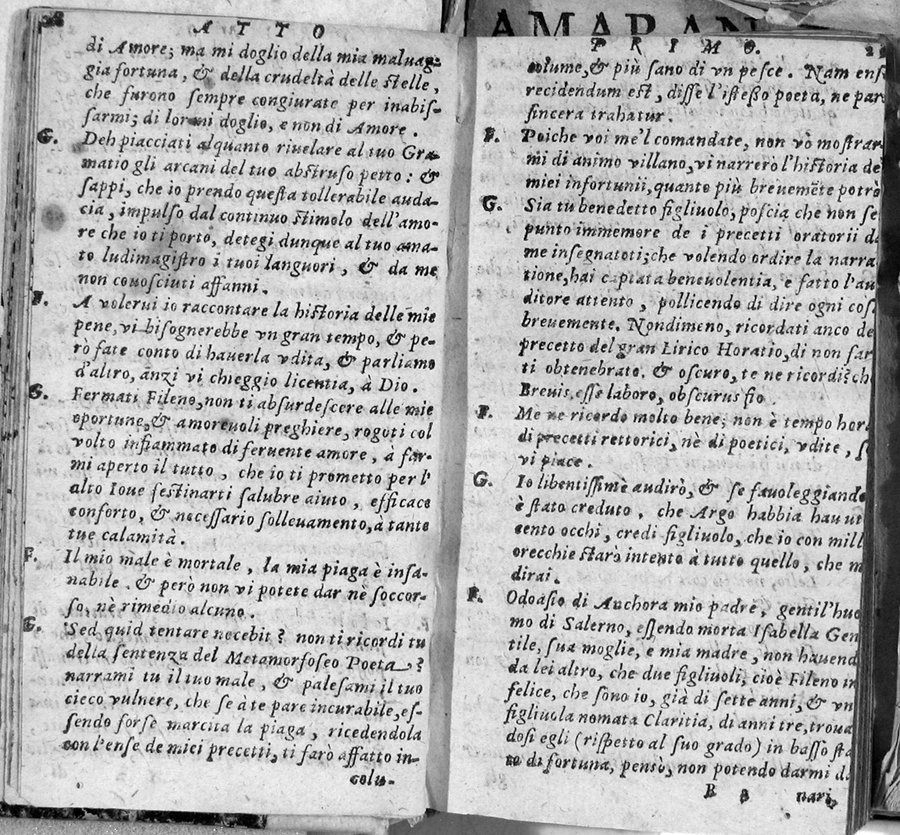 28 ATTO
di Amore; ma mi doglio della mia maluag-
gia fortuna, & della crudeltà delle stelle,
che furono sempre congiurate per inabis-
sarmi; di loro mi doglio, e non di Amore.
G. Deh piacciati alquanto riuelare al tuo Gra
matio gli arcani del tuo abstruso petto: &
sappi, che io prendo questa tollerabile auda-
cia, impulso dal continuo stimolo dell'amo-
re che io ti porto, detegi dunque al tuo ama-
to ludimagistro i tuoi languori, & da me
non conosciuti affanni.
F. A volerui io raccontare la historia delle mie
pene, vi bisognerebbe vn gran tempo, & pe-
rò fate conto di hauerla vdita, & parliamo
d'altro, anzi vi chieggio licentia, à Dio.
G. Fermati Fileno, non ti absurdescere alle mie
oportune, & amoreuoli preghiere, rogoti col
volto infiammato di feruente amore, à far-
mi aperto il tutto, che io ti prometto per l'
alto Ioue festinarti salubre aiuto, efficace
conforto, & necessario solleuamento, à tante
tue calamità.
F. Il mio male è mortale, la mia piaga è insa-
nabile, & però non vi potete dar nè soccor-
so, nè rimedio alcuno.
G. Sed quid tentare nocebit? non ti ricordi tu
della sentenza del Metamorfoseo Poeta?
narrami tu il tuo male, & palesami il tuo
cieco vulnere, che se à te pare incurabile, es-
sendo forse marcita la piaga, ricedendola
con l'ense de miei precetti, ti farò affatto in-
colu-
AMARAN
PRIMO. 2
colume, & più sano di vn pesce. Nam ens
recidendum est, disse l'istesso poeta, ne par
sincera trahatur.
F. Poiche voi me'l comandate, non vò mostrar-
mi di animo villano, vi narrerò l'historia de
miei infortunii, quanto più breuemēte potrò
G. Sia tu benedetto figliuolo, poscia che non se
punto immemore de i precetti oratorii da
me insegnatoti; che volendo ordire la narra
tione, hai captata beneuolentia, e fatto l'au
ditore attento, pollicendo di dire ogni cos
breuemente. Nondimeno, ricordati anco de
precetto del gran Lirico Horatio, di non far
ti obtenebrato, & oscuro, te ne ricordi? ch
Breuis esse laboro, obscurus fio.
F. Me ne ricordo molto bene; non è tempo hor
di precetti rettorici, nè di poetici, vdite, s
vi piace.
G. Io libentissimè audirò, & se fauoleggiando
è stato creduto, che Argo habbia hauut
cento occhi, credi figliuolo, che io con mill
orecchie starò intento à tutto quello, che m
dirai.
F. Odoasio di Anchora mio padre, gentil'huo
mo di Salerno, essendo morta Isabella Gen
tile, sua moglie, e mia madre, non hauend
da lei altro, che due figliuoli; cioè Fileno in
felice, che sono io, già di sette anni, & vn
figliuola nomata Claritia, di anni tre, troua
dosi egli (rispetto al suo grado) in basso sta
to di fortuna, pensò, non potendo darmi d
B 2 nari,